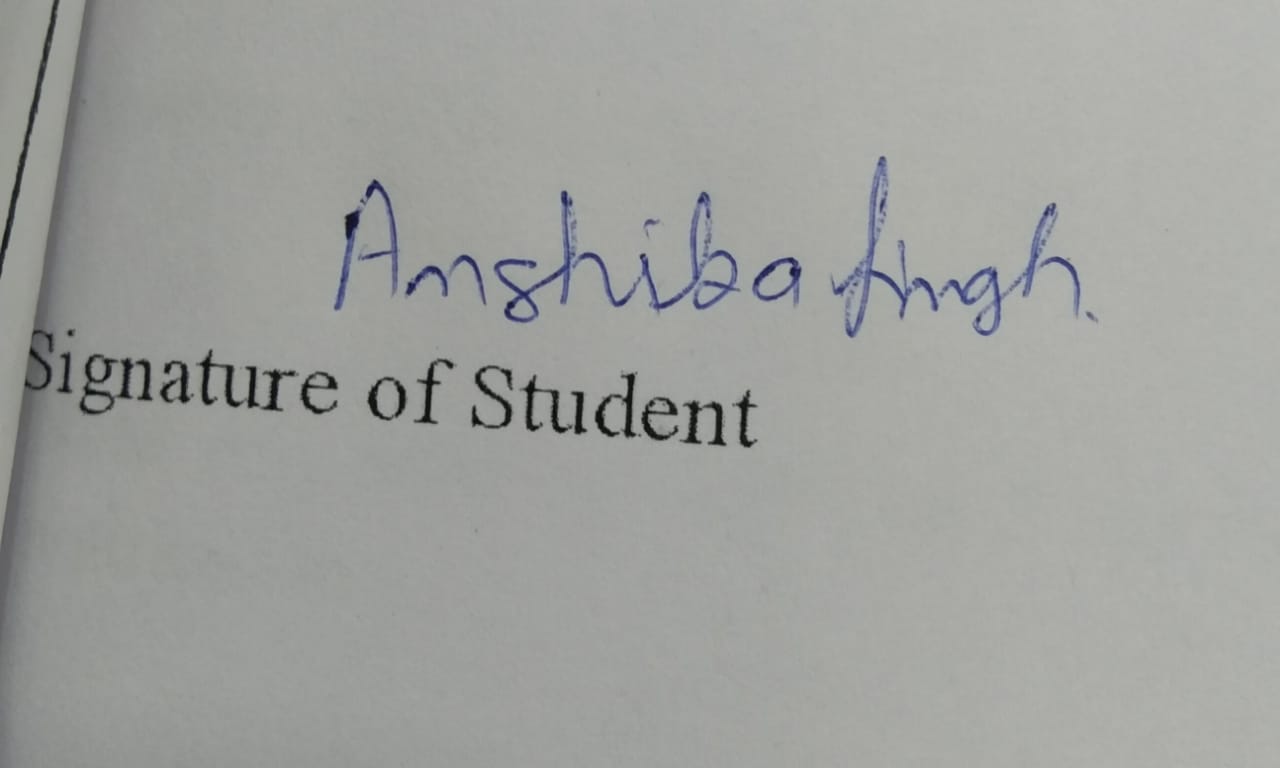 Anshika Singh.
Signature of Student